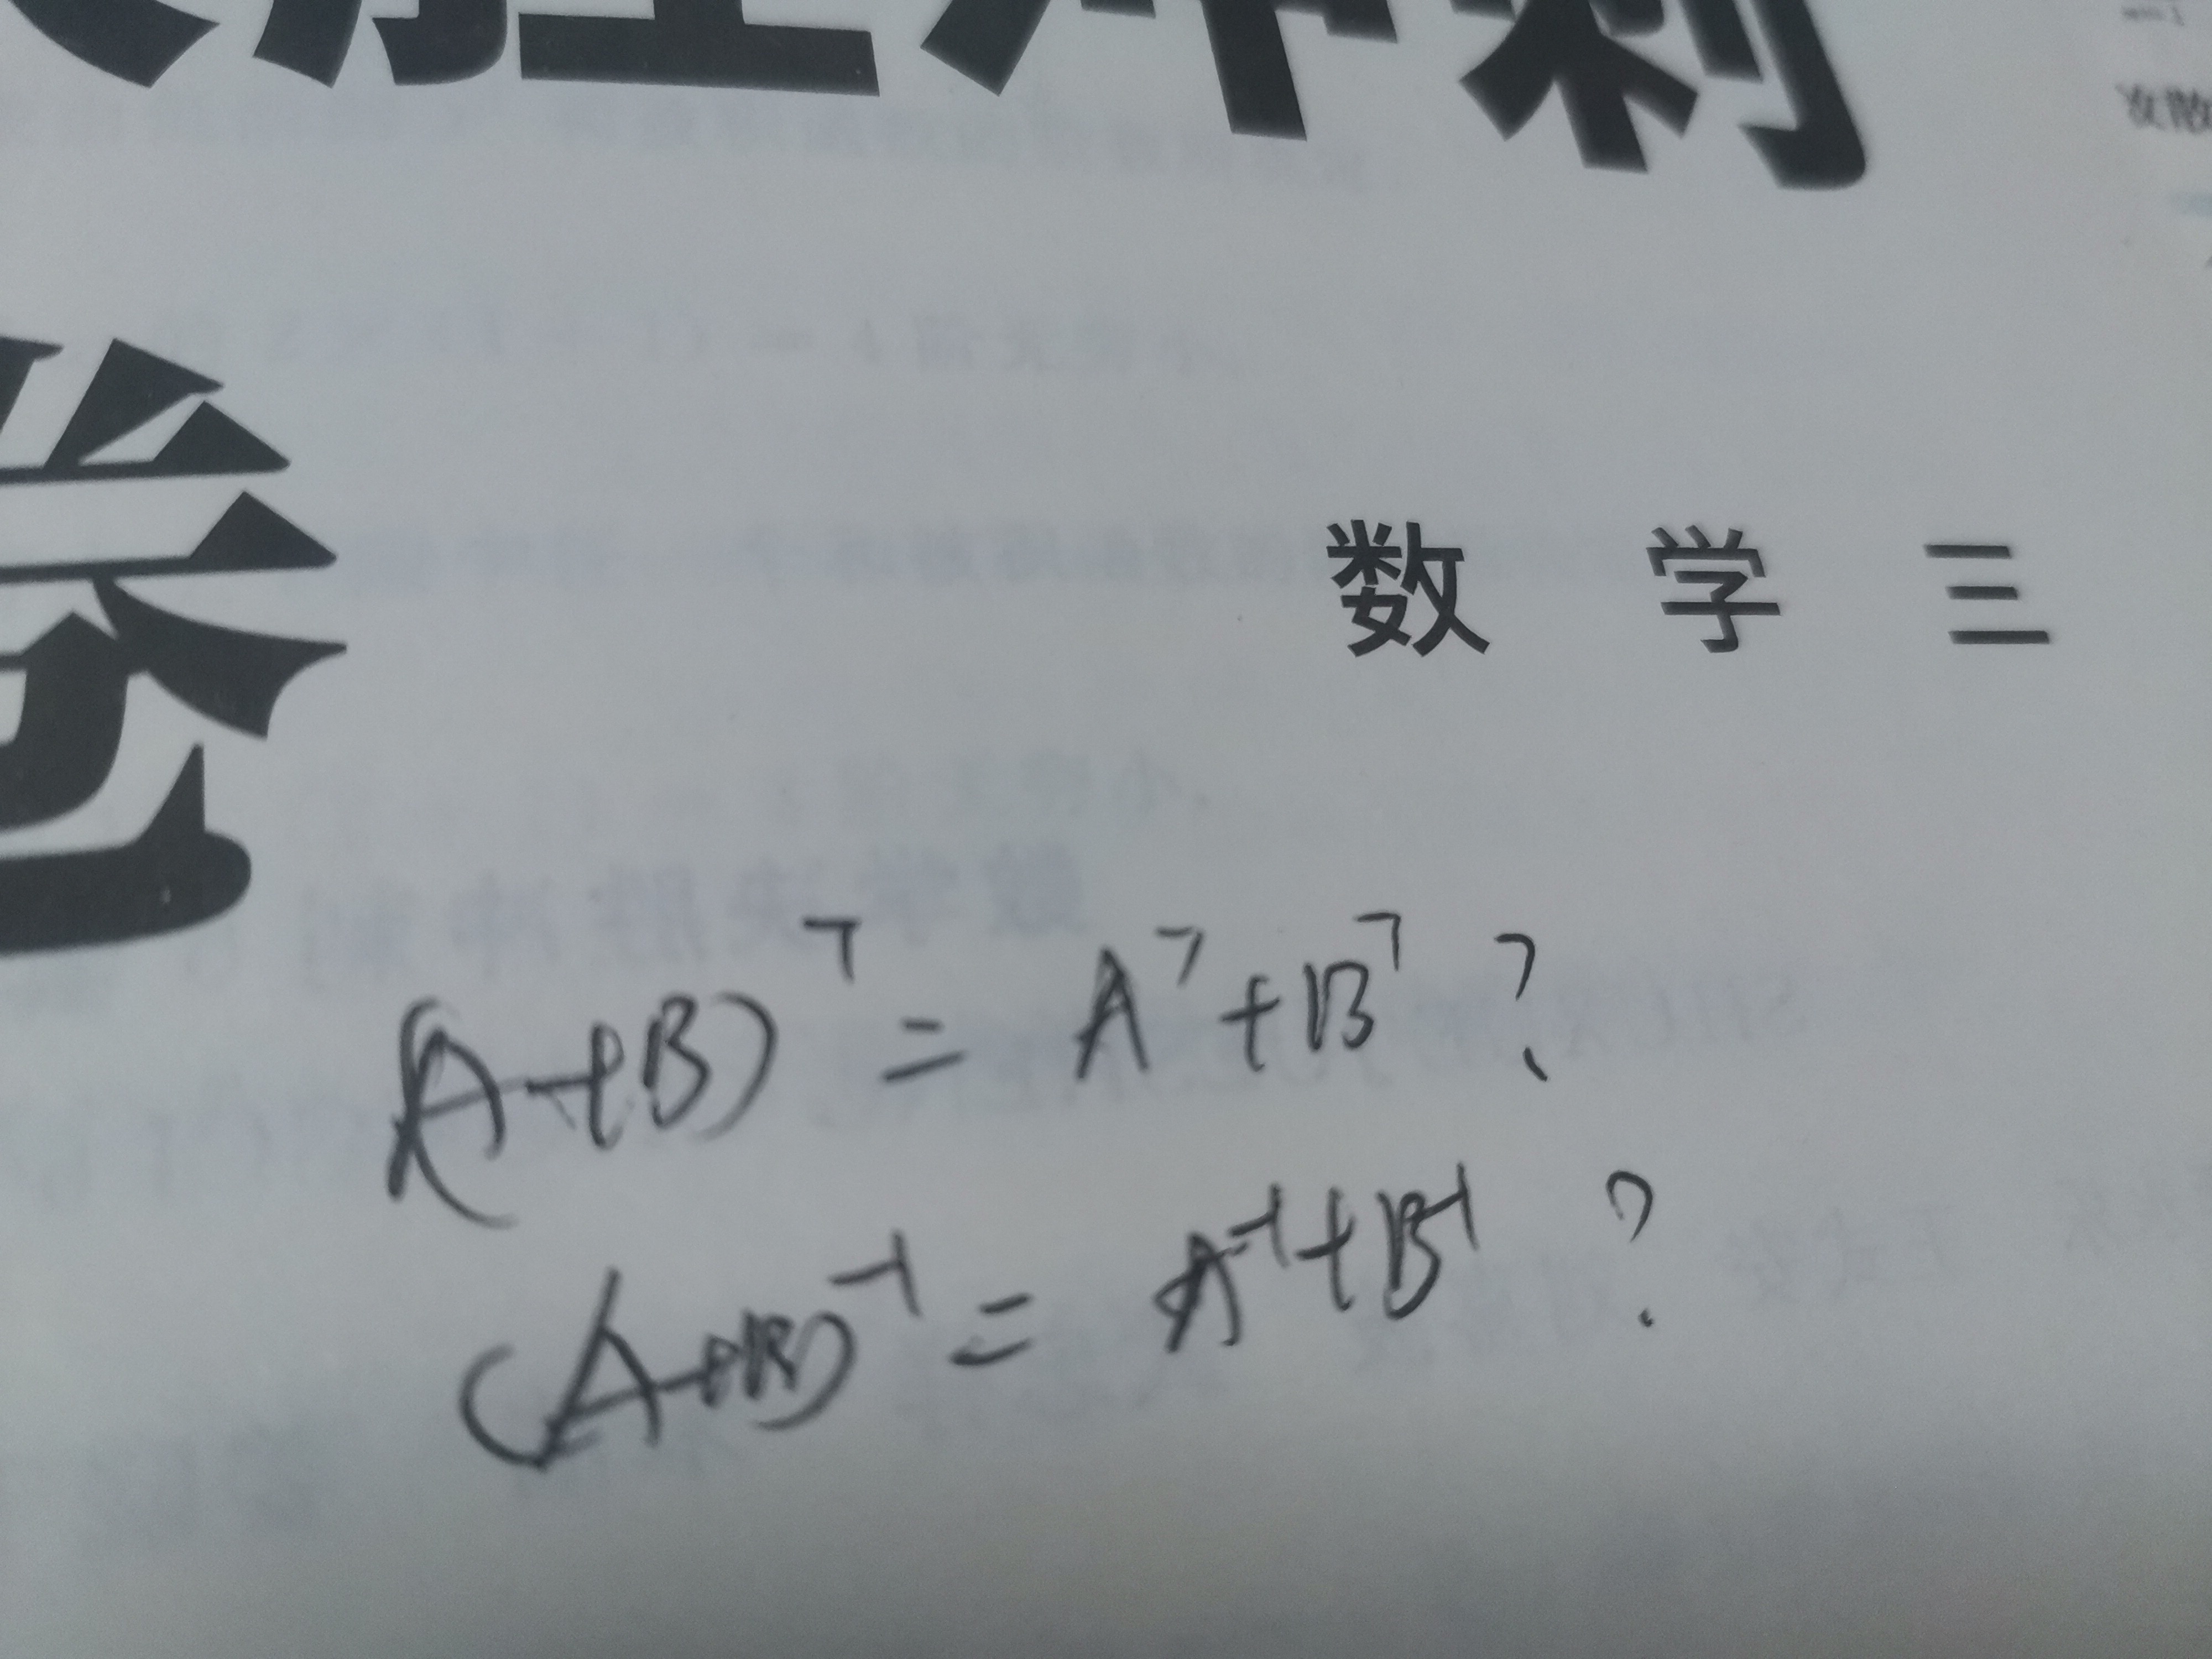 胜冲刺
卷
数学三
(A+B)ᵀ = Aᵀ+Bᵀ ?
(A+B)⁻¹ = A⁻¹+B⁻¹ ?